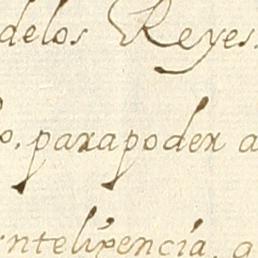 delos Reyes.
o, parapoder a
ntelixencia, a